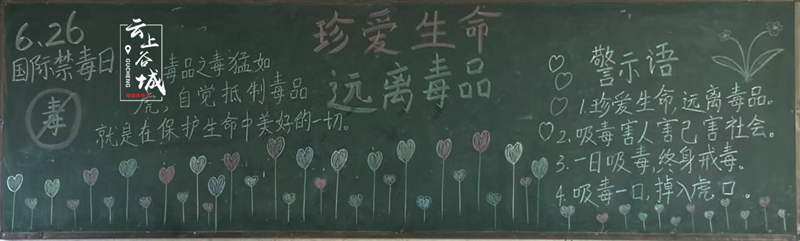 6.26
国际禁毒日
毒
云上谷城
GUCHENG
毒品之毒猛如
虎，自觉抵制毒品
就是在保护生命中美好的一切。
珍爱生命
远离毒品
警示语
1.珍爱生命，远离毒品。
2.吸毒害人害己害社会。
3.一日吸毒，终身戒毒。
4.吸毒一口，掉入虎口。